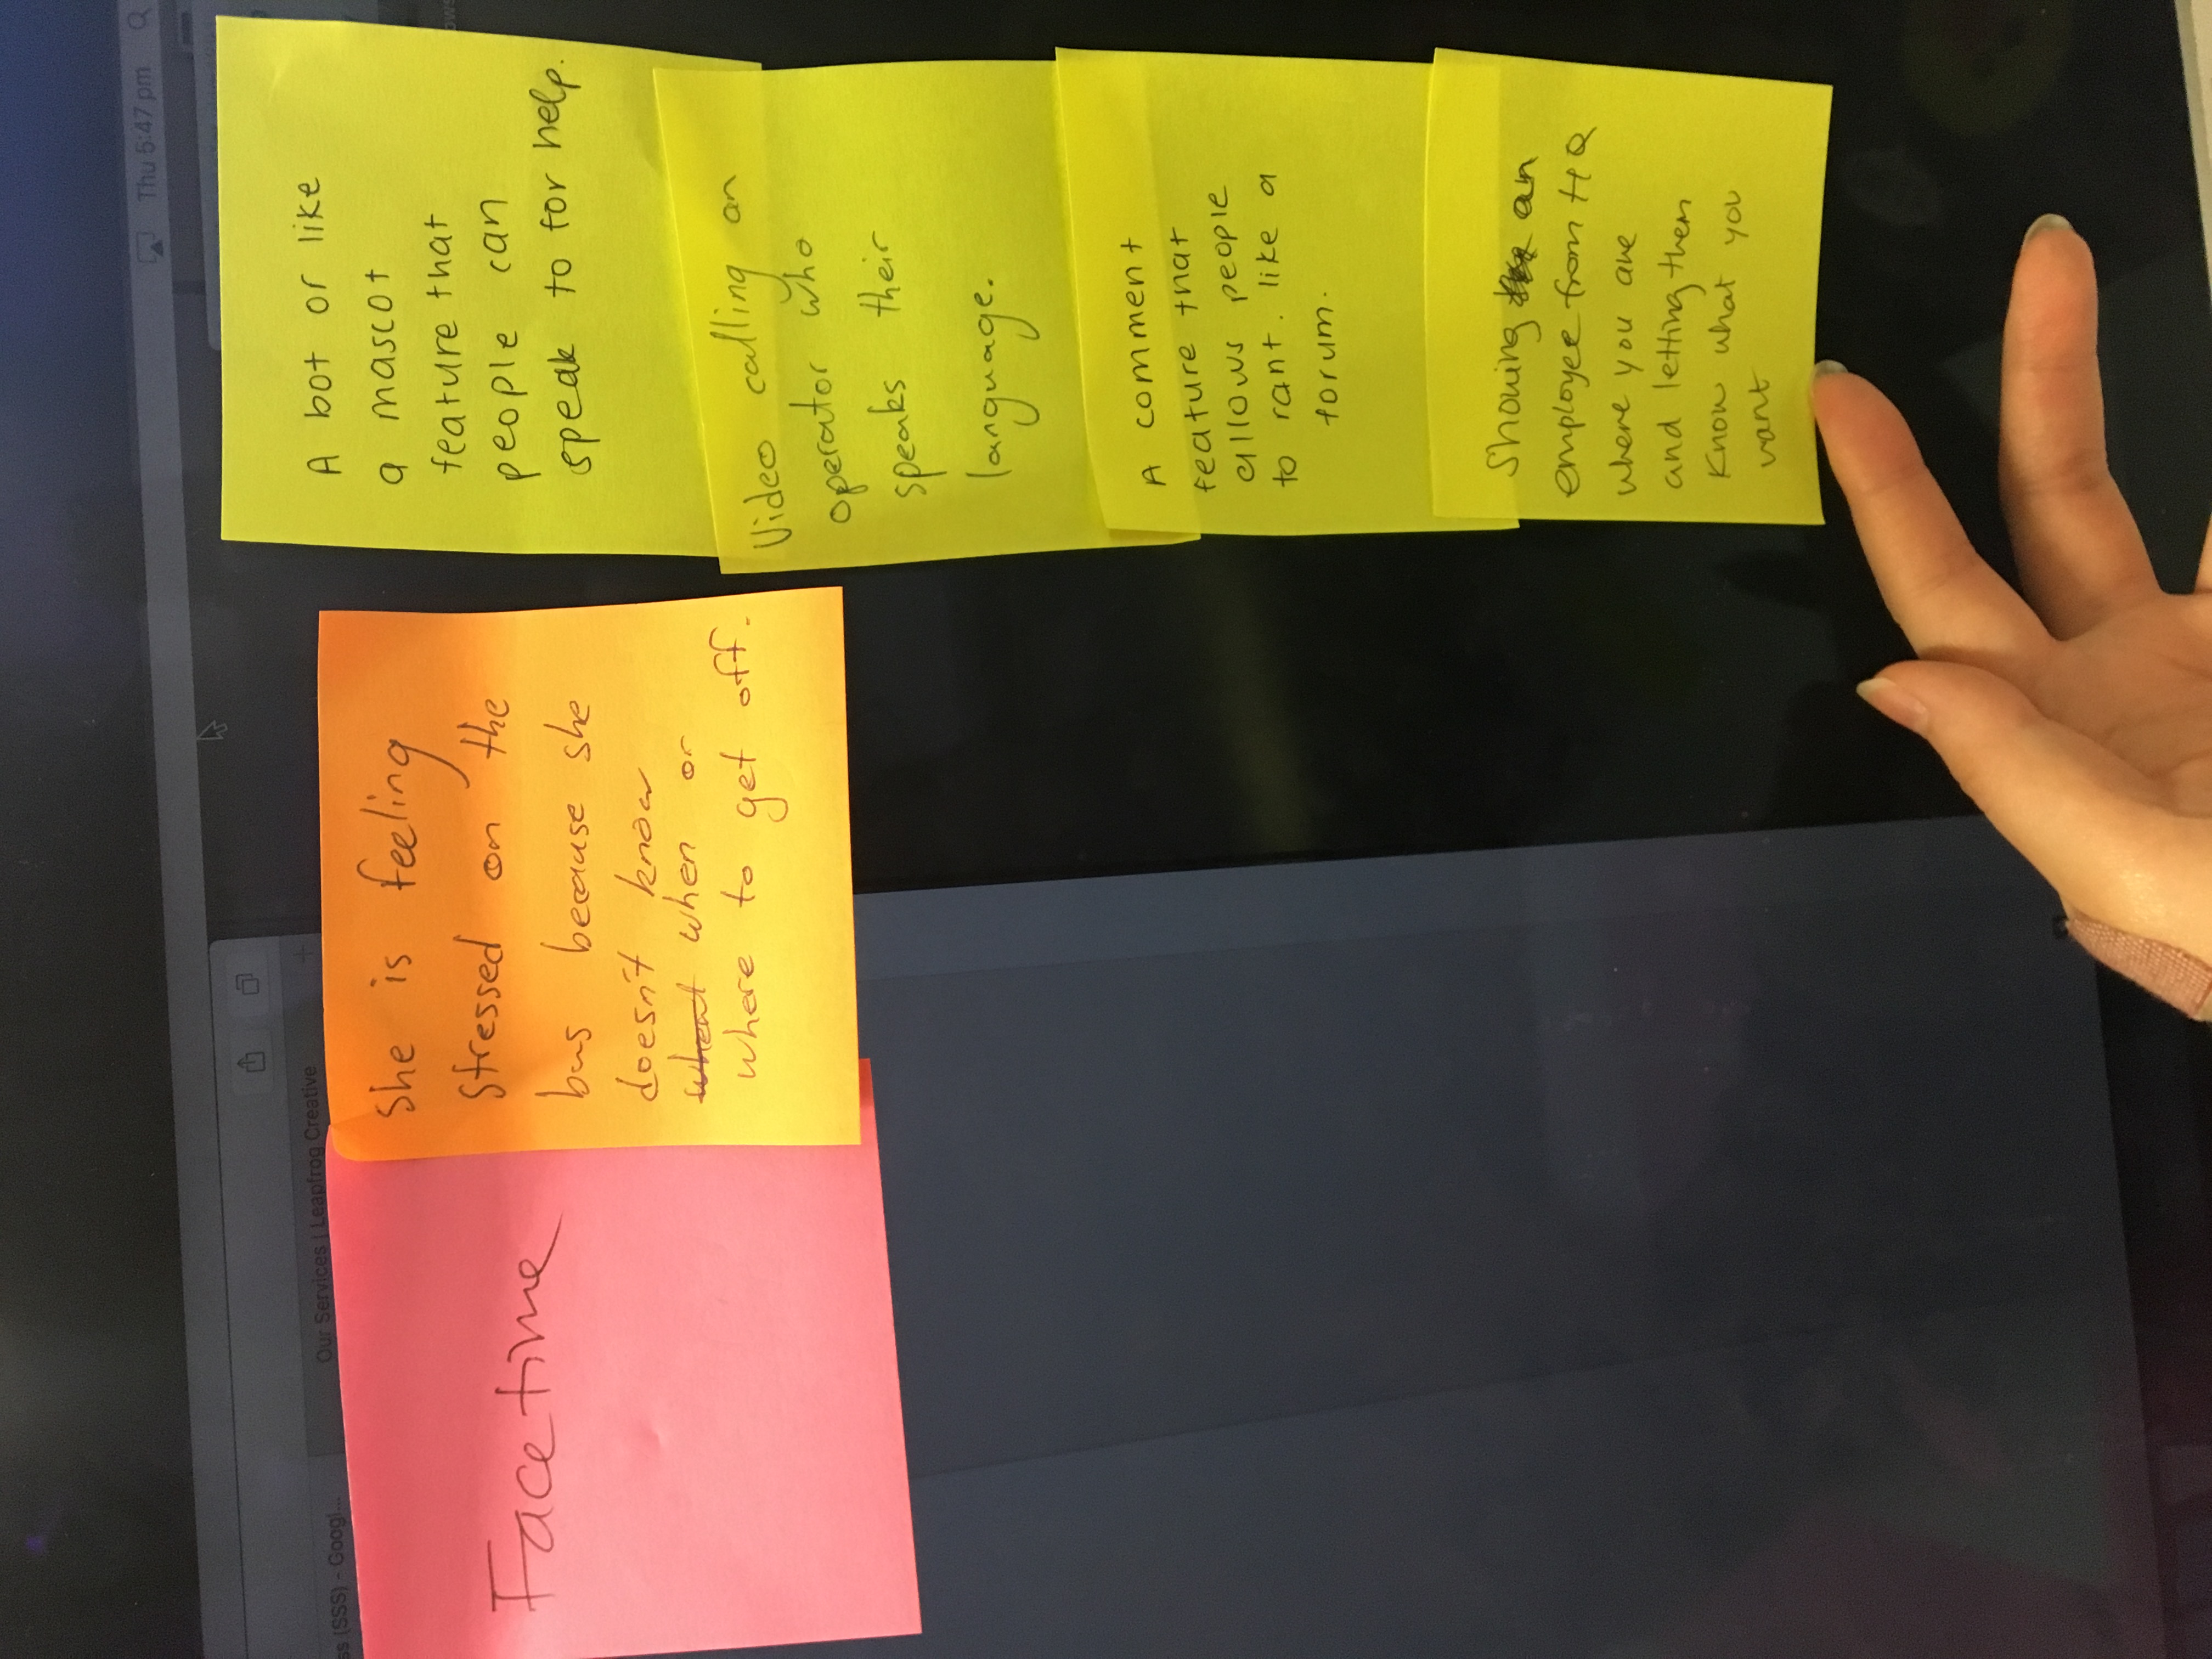 Thu 5:47 pm
ss (SSS) - Googl...
Our Services | Leapfrog Creative
Facetime
She is feeling
stressed on the
bus because she
doesn't know
when or
where to get off.
A bot or like
a mascot
feature that
people can
speak to for help.
Video calling an
operator who
speaks their
language.
A comment
feature that
allows people
to rant. like a
forum.
Showing an
employee from HQ
where you are
and letting them
know what you
want